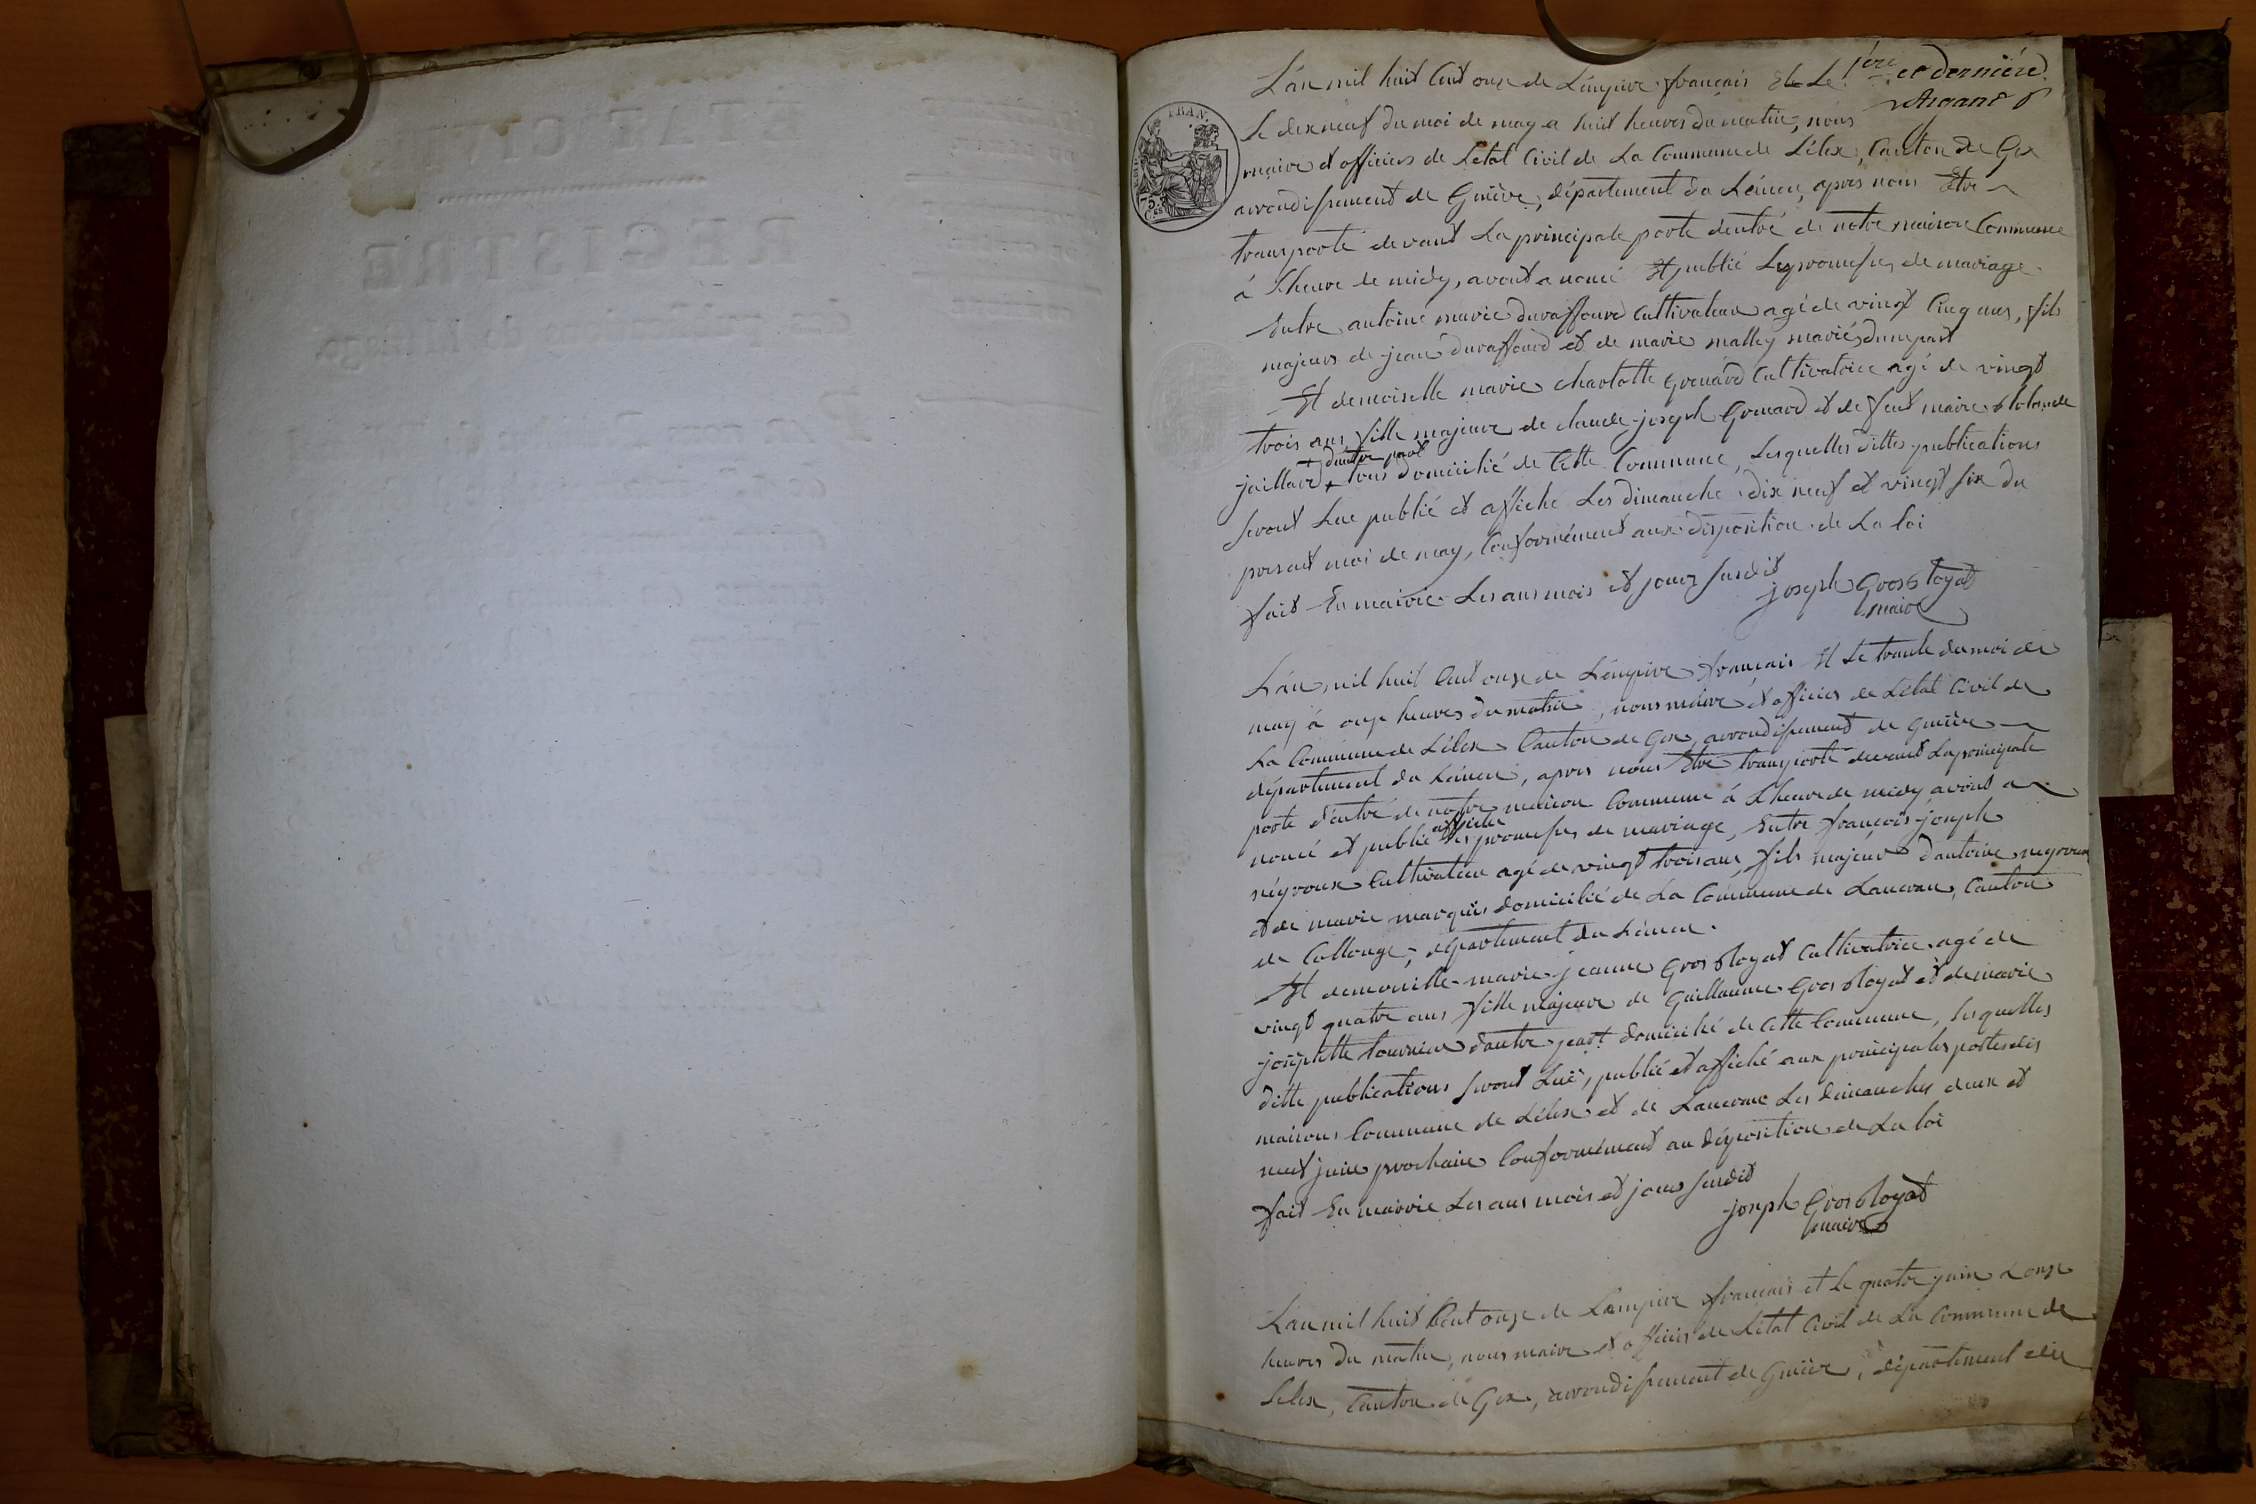 ÉTAT CIVIL
REGISTRE
1ère et dernière
L'an mil huit Cent onze de L'émpire francais Et Le
Le dix neuf du moi de may a huit heures du matin, nous
maire et officiers de Letat Civil de La Commune de Lélex, Canton de Gex
arrondissement de Genève, département du Léman, apres nous Etre
transporté devant La principale porte dentré de notre maison Commune
à Lheure de midy, avont anoncé Et publié Les promesses de mariage
Entre antoine marie duraffourd Cultivateur agé de vingt Cinq ans, fils
majeurs de jean duraffourd et de marie malley mariés dune part
Et demoiselle marie charlotte grenard Cultivatrice agé de vingt
trois ans fille majeure de claude joseph Grenard et de feut marie
jaillard + dautre part tous domicilié de Cette Commune, Lesquelles ditte publications
seront Lue publié et affiché Les dimanche dix neuf et vingt six du
present moi de may, Conformément aux disposition de La loi
fait En mairie Les ans mois et jours susdit
joseph Grosgtoyat
maire
L'an mil huit Cent onze de L'émpire francais Et Le trante du moi de
may à onze heures du matin, nous maire et officier de Létat Civil de
La Commune de Lélex Canton de Gex arrondissement de Genève
département du Léman, apres nous Etre transporté devant La principale
porte d'entré de notre maison Commune à Lheure de midy avont a
noncé et publié affiché Les promesses de mariage, Entre françois joseph
négroux Cultivateur agé de vingt trois ans, fils majeur d'antoine negroux
et de marie marquis domicilié de La Commune de Lancran, Canton
de Collonge, département du Léman.
Et demoiselle marie jeanne Grosgtoyat Cultivatrice agé de
vingt quatre ans fille majeure de Guillaume Grosgtoyat et de marie
josephtte tournier dautre part domicilié de Cette Commune, Lesquelles
ditte publications seront Lué, publié et affiché aux principales portes des
maisons Commune de Lélex et de Lancran Les dimanches deux et
neuf juin prochain Conformément au disposition de La loi
fait En mairie Les ans mois et jours susdit
joseph Grosgtoyat
maire
L'an mil huit Cent onze de L'ampire francais et le quatre juin a onze
heures du matin, nous maire et officier de Létat Civil de La Commune de
Lélex, Canton de Gex, arrondissement de Genève, département du